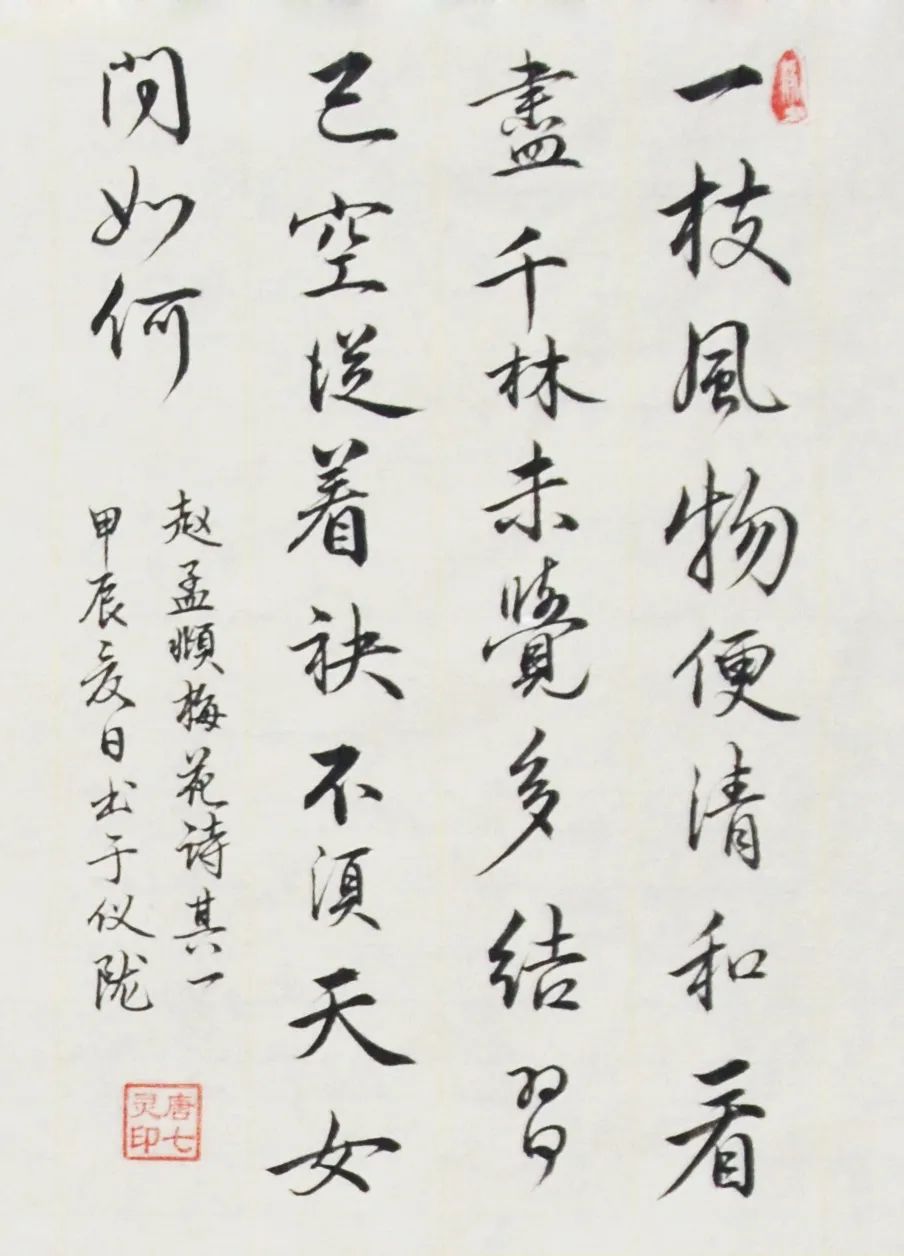 一枝風物便清和看
盡千林未覺多結習
已空從着袂不須天女
問如何
赵孟頫梅花詩其一
甲辰夏日书于仪陇
唐七灵印